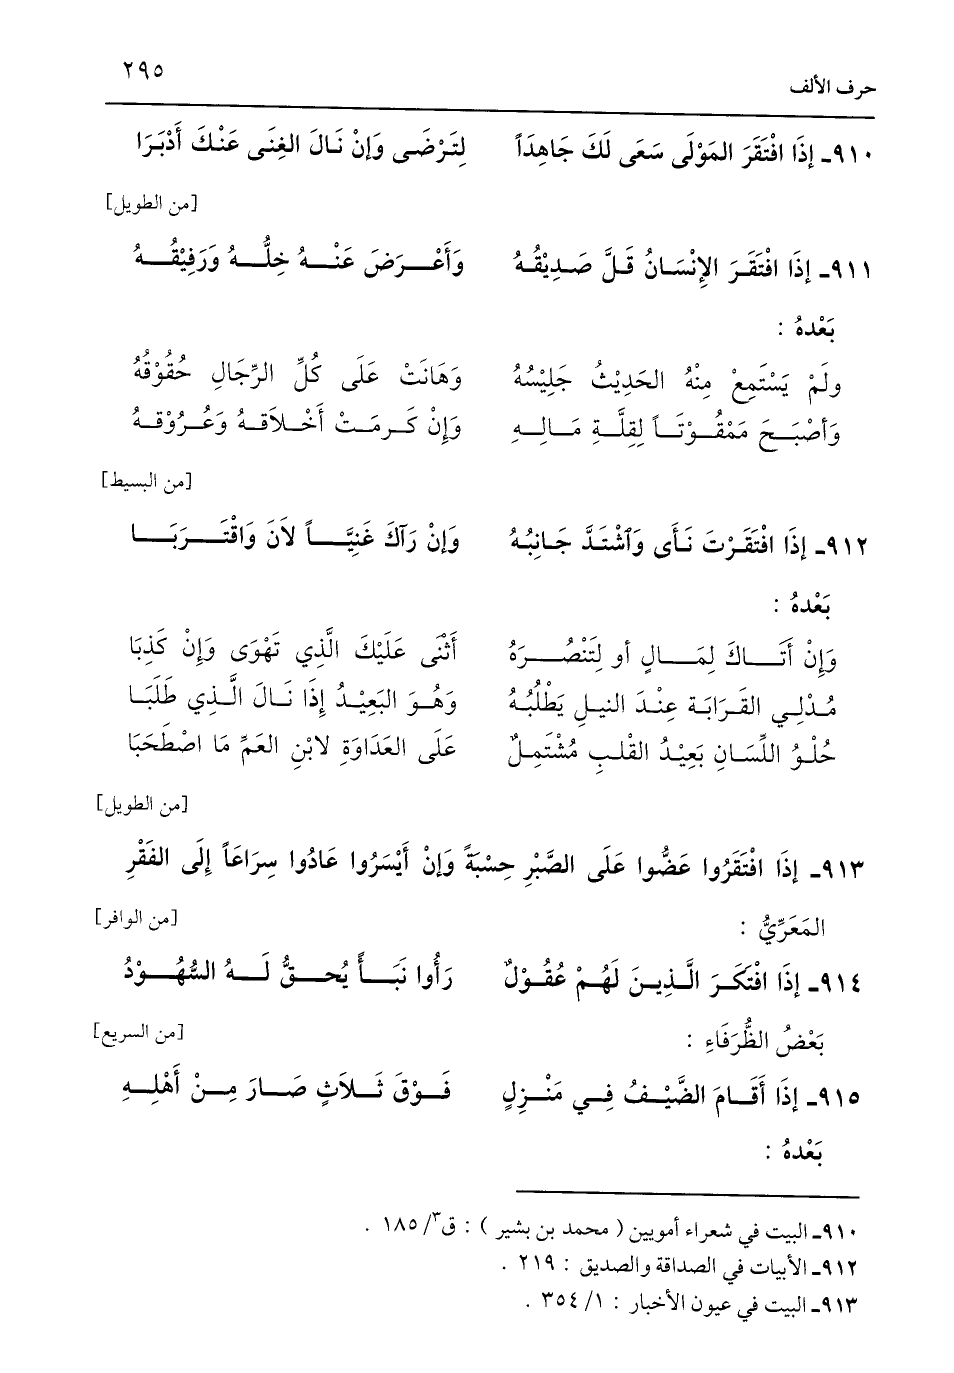 حرف الألف ٢٩٥
٩١٠ـ إِذَا افْتَقَرَ المَوْلَى سَعَى لَكَ جَاهِدَاً لِتَرْضَى وَإِنْ نَالَ الغِنَى عَنْكَ أَدْبَرَا
[من الطويل]
٩١١ـ إِذَا افْتَقَرَ الإِنْسَانُ قَلَّ صَدِيْقُهُ وَأَعْرَضَ عَنْهُ خِلُّهُ وَرَفِيْقُهُ
بَعْدهُ :
وَلَمْ يَسْتَمِعْ مِنْهُ الحَدِيْثُ جَلِيْسُهُ وَهَانَتْ عَلَى كُلِّ الرِّجَالِ حُقُوْقُهُ
وَأصْبَحَ مَمْقُوْتَاً لِقِلَّةِ مَالِهِ وَإِنْ كَرمَتْ أَخْلَاقهُ وَعُرُوْقهُ
[من البسيط]
٩١٢ـ إِذَا افْتَقَرْتَ نَأَى وَٱشْتَدَّ جَانِبُهُ وَإِنْ رَآكَ غَنِيَّاً لاَنَ وَاقْتَرَبَا
بَعْدهُ :
وَإِنْ أَتَاكَ لِمَالٍ أو لِتَنْصُرَهُ أَثْنَى عَلَيْكَ الَّذِي تَهْوَى وَإِنْ كَذِبَا
مُدْلِي القَرَابَة عِنْدَ النيلِ يَطْلُبُهُ وَهُوَ البَعِيْدُ إِذَا نَالَ الَّذِي طَلَبَا
حُلْوُ اللِّسَانِ بَعِيْدُ القْلبِ مُشْتَمِلٌ عَلَى العَدَاوَةِ لابْنِ العَمِّ مَا اصْطَحَبَا
[من الطويل]
٩١٣ـ إِذَا افْتَقَرُوا عَضُّوا عَلَى الصَّبْرِ حِسْبَةً وَإِنْ أَيْسَرُوا عَادُوا سِرَاعَاً إِلَى الفَقْرِ
المَعَرِّيُّ : [من الوافر]
٩١٤ـ إِذَا افْتَكَرَ الَّذِينَ لَهُمْ عُقُوْلٌ رَأُوا نَبَأً يُحِقُّ لَهُ السُّهُوْدُ
بَعْضُ الظُّرَفَاءِ : [من السريع]
٩١٥ـ إِذَا أَقَامَ الضَّيْفُ فِي مَنْزِلٍ فَوْقَ ثَلَاثٍ صَارَ مِنْ أَهْلِهِ
بَعْدهُ :
٩١٠ـ البيت في شعراء أمويين ( محمد بن بشير ) : ق٣/ ١٨٥ .
٩١٢ـ الأبيات في الصداقة والصديق : ٢١٩ .
٩١٣ـ البيت في عيون الأخبار : ١/ ٣٥٤ .